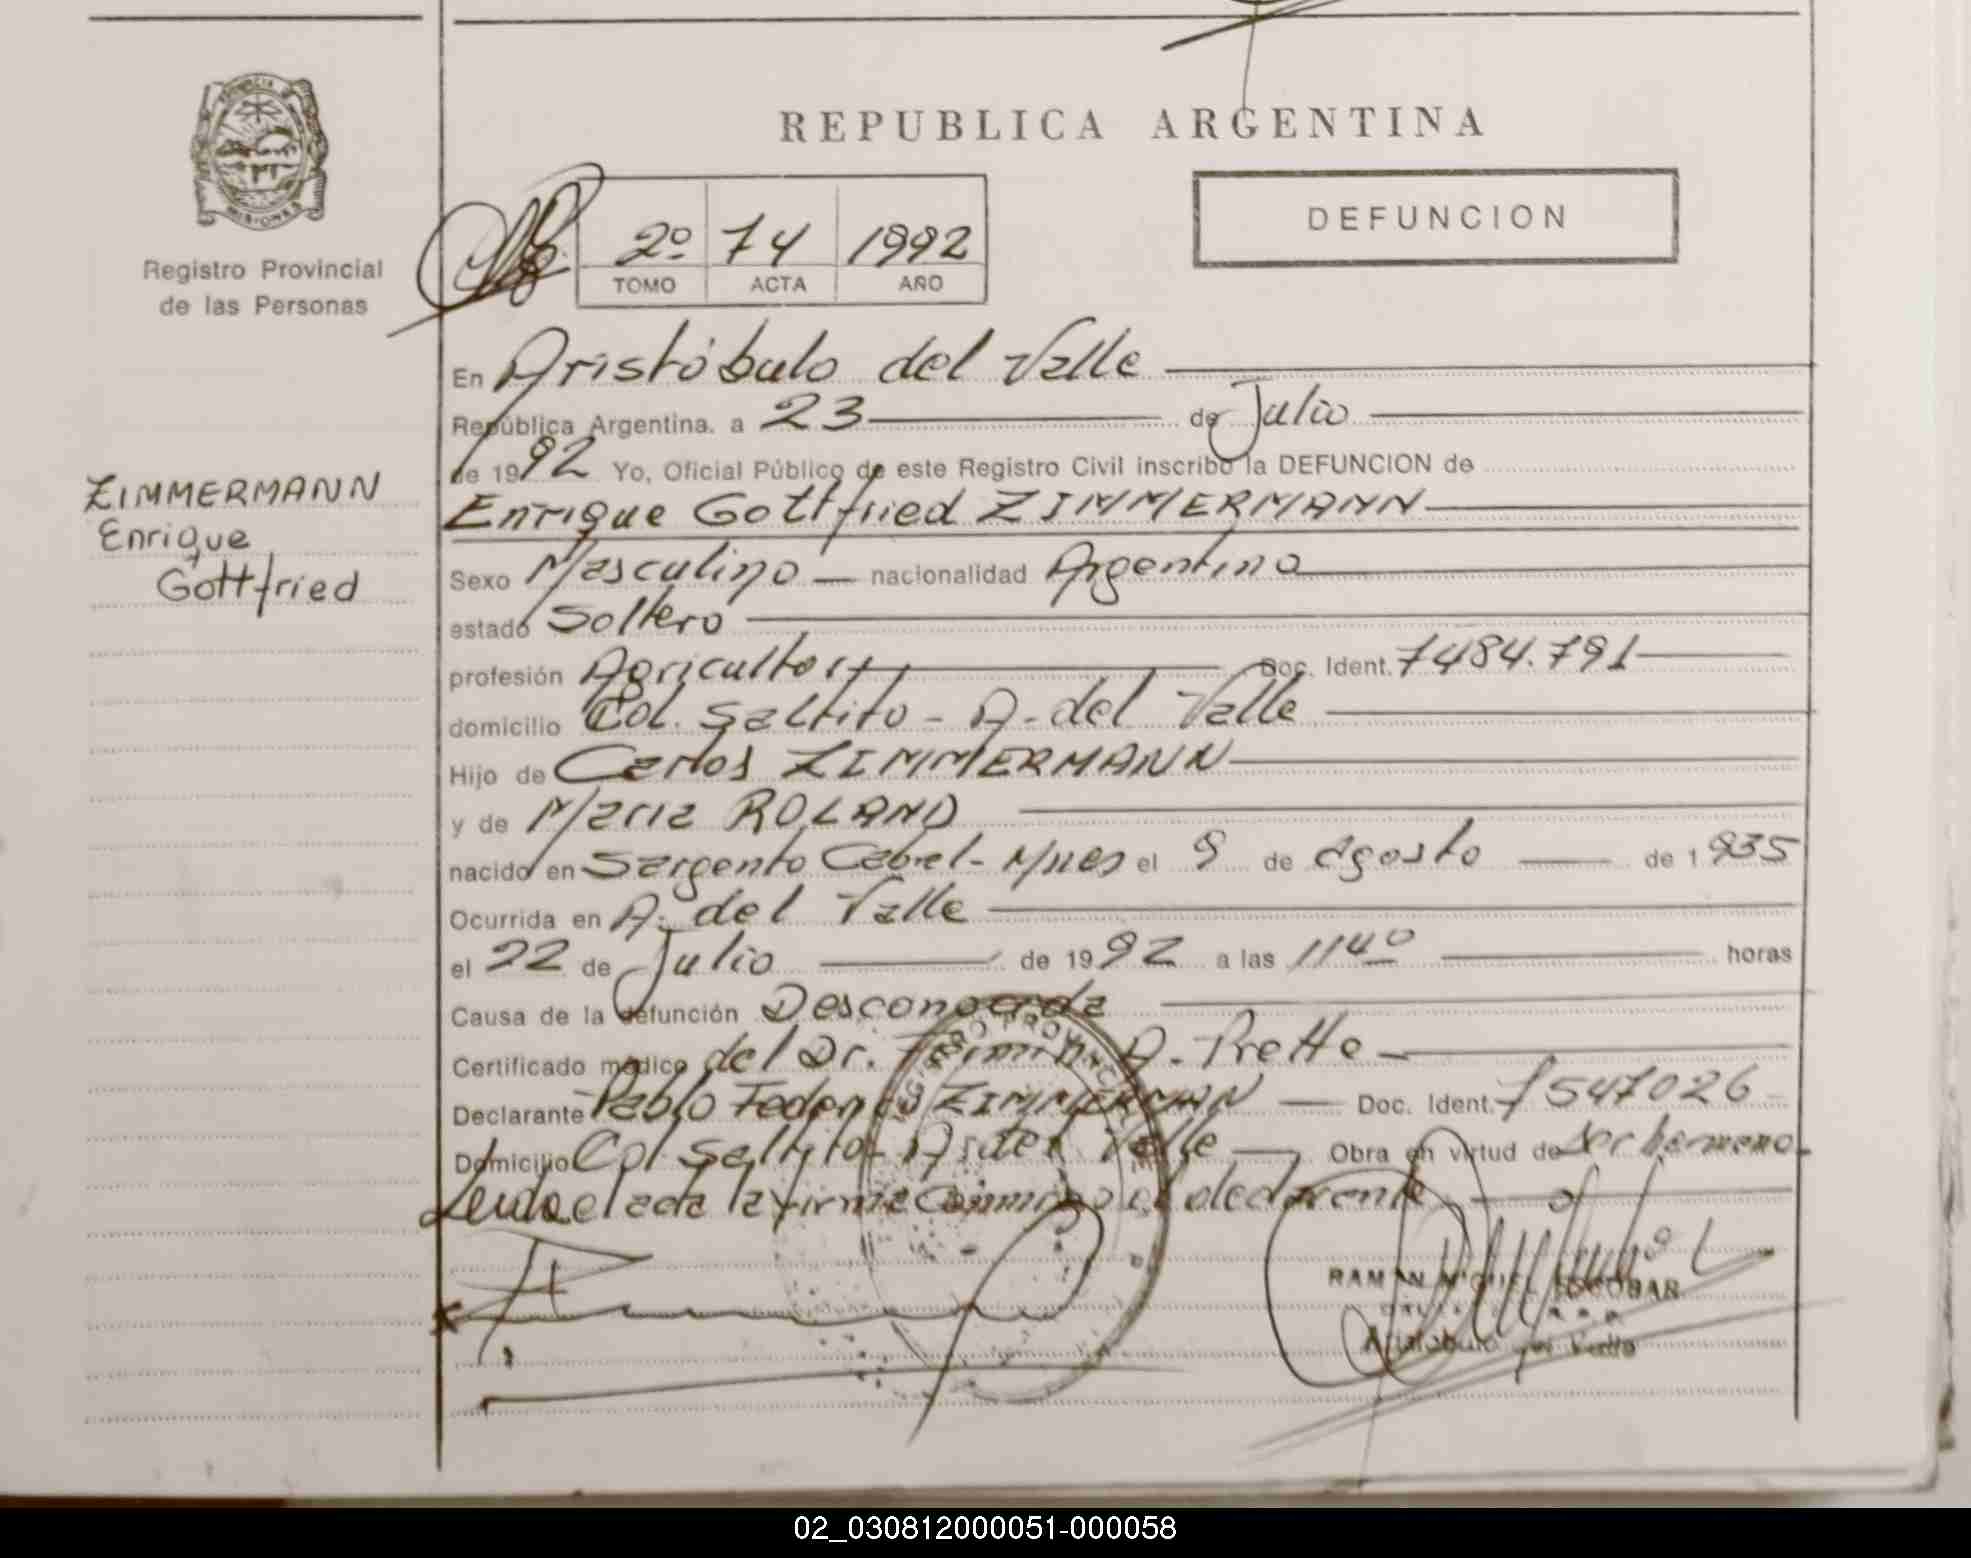 REPUBLICA ARGENTINA
DEFUNCION
PROVINCIA DE MISIONES
Registro Provincial
de las Personas
2º 74 1992
TOMO ACTA AÑO
En Aristóbulo del Valle
República Argentina. a 23 de Julio
de 1992 Yo, Oficial Público de este Registro Civil inscribo la DEFUNCION de
Enrique Gottfried ZIMMERMANN
ZIMMERMANN
Enrique
Gottfried
Sexo Masculino nacionalidad Argentina
estado Soltero
profesión Agricultor Doc. Ident. 7484.791
domicilio Col. Saltito - A. del Valle
Hijo de Carlos ZIMMERMANN
y de Maria ROLAND
nacido en Sargento Cabral - Mnes el 9 de agosto de 1935
Ocurrida en A. del Valle
el 22 de Julio de 1992 a las 1140 horas
Causa de la defunción Desconocida
Certificado médico del Dr. A. Prette
Declarante Pablo Federico ZIMMERMAN Doc. Ident. 7547026
Domicilio Col Saltito - A. del Valle Obra en virtud de ser hermano.
Leida el acta la firma conmigo el declarante
REGISTRO PROVINCIAL
RAMON MIGUEL ESCOBAR
Aristobulo del Valle
02_030812000051-000058